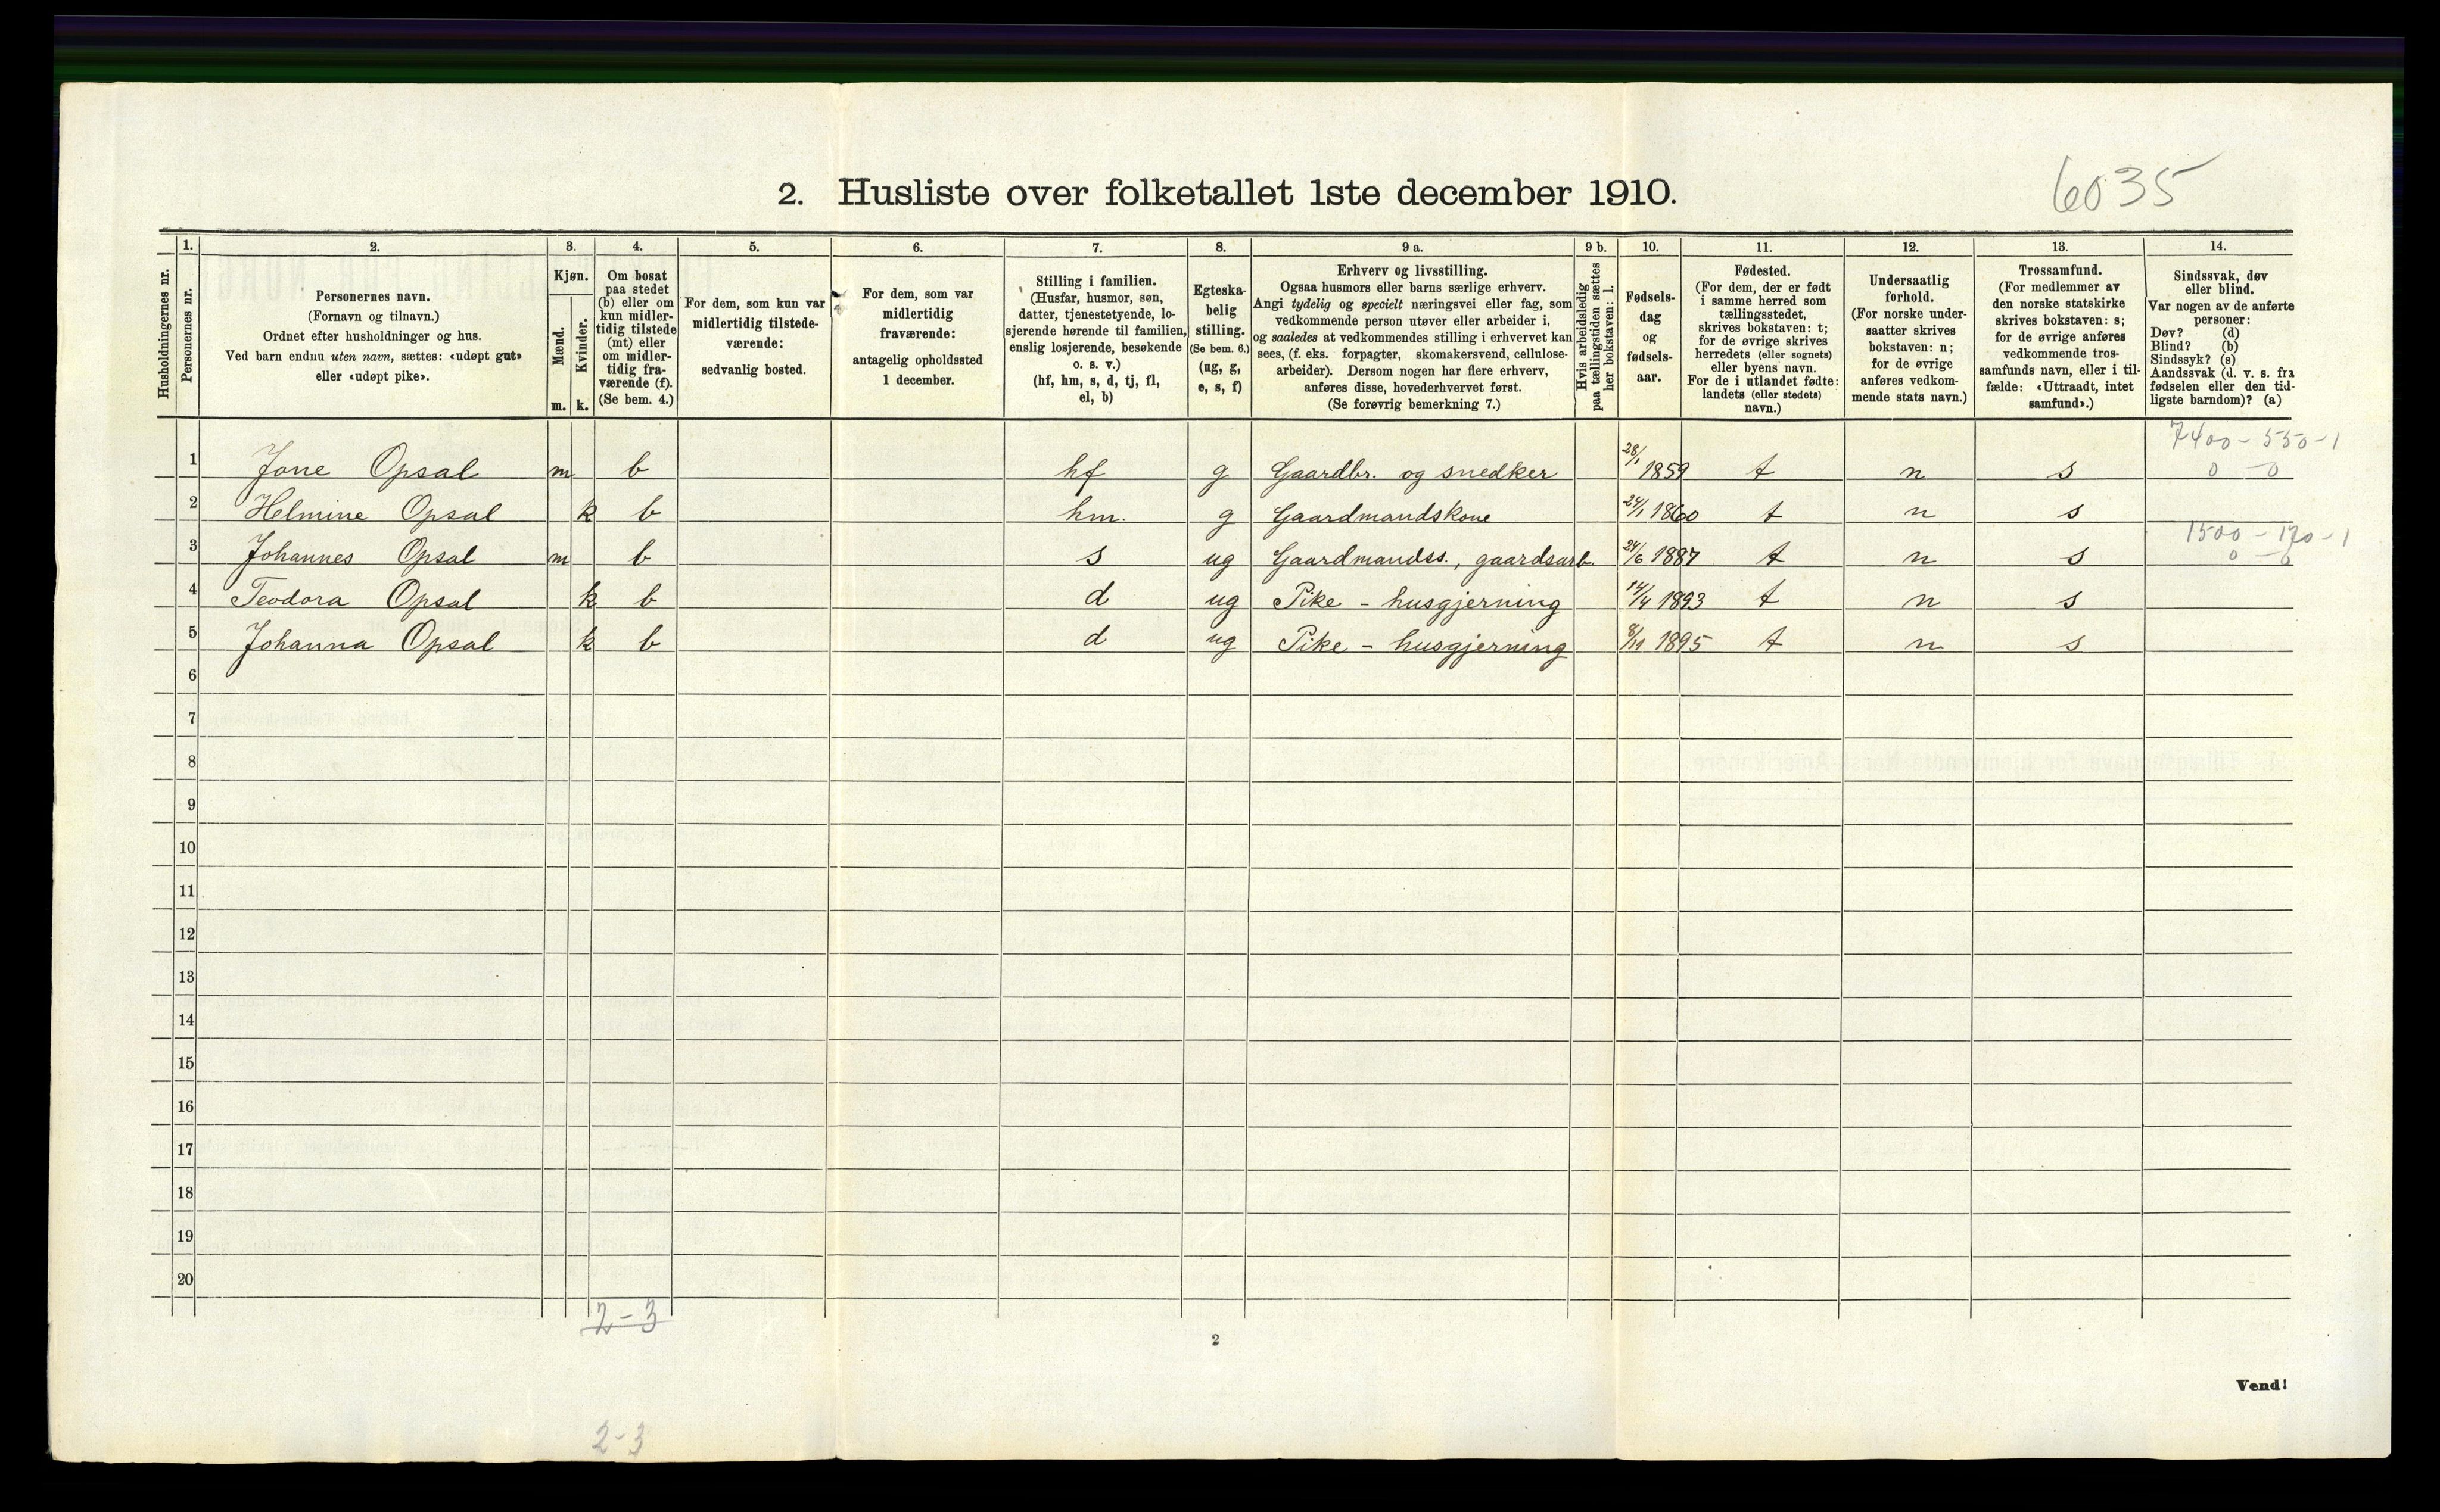 6035
2. Husliste over folketallet 1ste december 1910.
Husholdningernes nr.
1.
Personernes nr.
2.
Personernes navn.
(Fornavn og tilnavn.)
Ordnet efter husholdninger og hus.
Ved barn endnu uten navn, sættes: «udøpt gut»
eller «udøpt pike».
3.
Kjøn.
Mænd.
Kvinder.
m. k.
4.
Om bosat
paa stedet
(b) eller om
kun midler-
tidig tilstede
(mt) eller
om midler-
tidig fra-
værende (f).
(Se bem. 4.)
5.
For dem, som kun var
midlertidig tilstede-
værende:
sedvanlig bosted.
6.
For dem, som var
midlertidig
fraværende:
antagelig opholdssted
1 december.
7.
Stilling i familien.
(Husfar, husmor, søn,
datter, tjenestetyende, lo-
sjerende hørende til familien,
enslig losjerende, besøkende
o. s. v.)
(hf, hm, s, d, tj, fl,
el, b)
8.
Egteska-
belig
stilling.
(Se bem. 6.)
(ug, g,
e, s, f)
9 a.
Erhverv og livsstilling.
Ogsaa husmors eller barns særlige erhverv.
Angi tydelig og specielt næringsvei eller fag, som
vedkommende person utøver eller arbeider i,
og saaledes at vedkommendes stilling i erhvervet kan
sees, (f. eks. forpagter, skomakersvend, cellulose-
arbeider). Dersom nogen har flere erhverv,
anføres disse, hovederhvervet først.
(Se forøvrig bemerkning 7.)
9 b.
Hvis arbeidsledig
paa tællingstiden sættes
her bokstaven: l.
10.
Fødsels-
dag
og
fødsels-
aar.
11.
Fødested.
(For dem, der er født
i samme herred som
tællingsstedet,
skrives bokstaven: t;
for de øvrige skrives
herredets (eller sognets)
eller byens navn.
For de i utlandet fødte:
landets (eller stedets)
navn.)
12.
Undersaatlig
forhold.
(For norske under-
saatter skrives
bokstaven: n;
for de øvrige
anføres vedkom-
mende stats navn.)
13.
Trossamfund.
(For medlemmer av
den norske statskirke
skrives bokstaven: s;
for de øvrige anføres
vedkommende tros-
samfunds navn, eller i til-
fælde: «Uttraadt, intet
samfund».)
14.
Sindssvak, døv
eller blind.
Var nogen av de anførte
personer:
Døv? (d)
Blind? (b)
Sindssyk? (s)
Aandssvak (d. v. s. fra
fødselen eller den tid-
ligste barndom)? (a)
7400 - 550 - 1
1 Jone Opsal m b hf g Gaardbr. og snedker 28/1 1859 t n s 0 - 0
2 Helmine Opsal k b hm. g Gaardmandskone 24/1 1860 t n s
1500 - 170 - 1
3 Johannes Opsal m b s ug Gaardmandss., gaardsarb. 24/6 1887 t n s 0 - 0
4 Teodora Opsal k b d ug Pike - husgjerning 14/4 1893 t n s
5 Johanna Opsal k b d ug Pike - husgjerning 8/11 1895 t n s
6
7
8
9
10
11
12
13
14
15
16
17
18
19
20
2-3
2
Vend!
2-3